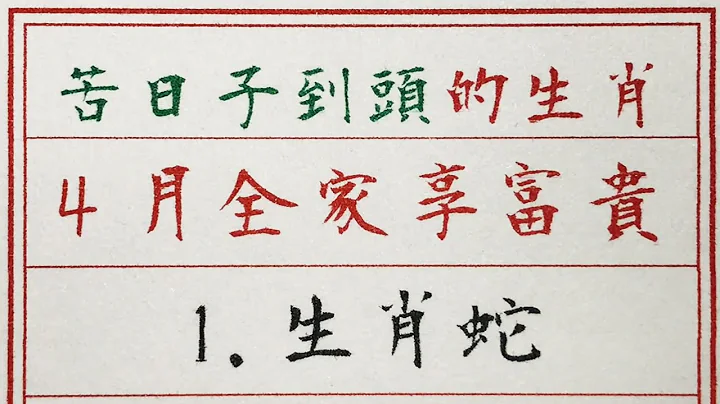 苦日子到頭的生肖
4月全家享富貴
1.生肖蛇